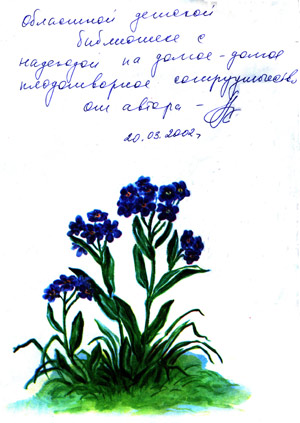 Областной детской
библиотеке с
надеждой на долгое-долгое
плодотворное сотрудничество
от автора -
20.03.2002г